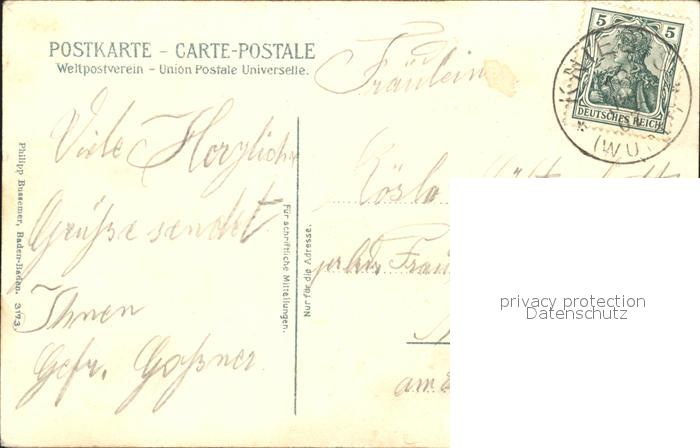 POSTKARTE – CARTE-POSTALE
Weltpostverein – Union Postale Universelle.
Viele Herzliche
Grüße sendet
Ihnen
Gefr. Goßner
Philipp Bussemer, Baden-Baden. 3173
Für schriftliche Mitteilungen.
Nur für die Adresse.
5 5
DEUTSCHES REICH
(WÜ
Fräulein
Rösle
Frau
am
privacy protection
Datenschutz